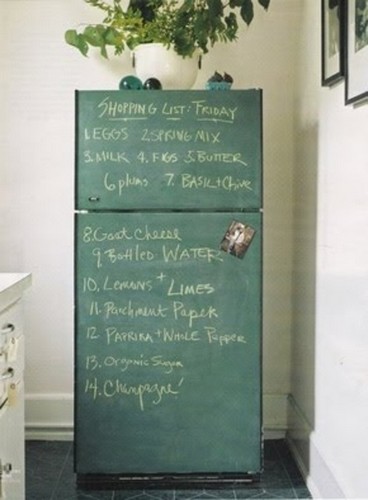 SHOPPING LIST: FRIDAY
1. EGGS 2. SPRING MIX
3. MILK 4. FIGS 5. BUTTER
6 plums 7. BASIL + Chive
8. Goat Cheese
9. Bottled WATER
10. LEMONS + LIMES
11. Parchment Paper
12. PAPRIKA + WHOLE Pepper
13. Organic Sugar
14. Champagne!